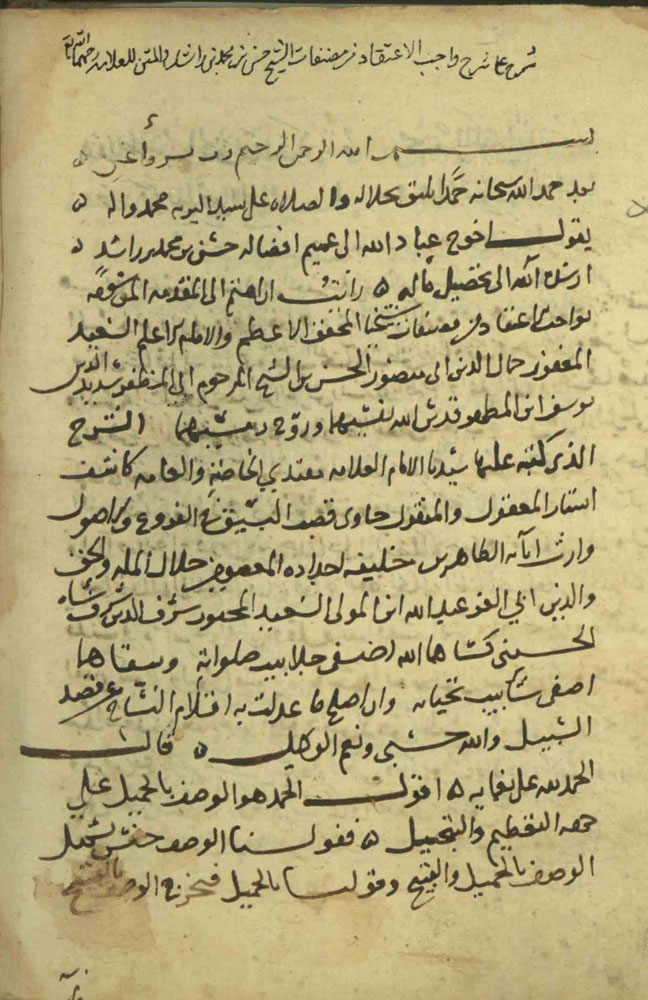 شرح على شرح واجب الاعتقاد من مصنفات الشيخ حسن بن محمد بن راشد والمتن للعلامه رحمهما الله تع
بسم الله الرحمن الرحيم رب يسر وأعن
بعد حمد الله سبحانه حمدا يليق بجلاله والصلاه على سيد البريه محمد واله
يقول احوج عباد الله الى عميم افضاله حسن بن محمد بن راشد
ارشده الله الى تحصيل ماله رايت ان اضم الى المقدمه الموسومه
بواجب الاعتقاد من مصنفات شيخنا المحقق الاعظم والامام الاعلم السعيد
المغفور جمال الدين ابى منصور الحسن بن الشيخ المرحوم ابي المظفر سديد الدين
يوسف ابن المطهر قدس الله نفسيهما وروح رمسيهما الشرح
الذي كتبه عليها سيدنا الامام العلامه مقتدي الخاصة والعامه كاشف
استار المعقول والمنقول حاوى قصب السبق في الفروع والاصول
وارث ابآئه الطاهرين خليفه اجداده المعصومين جلال المله والحق
والدين ابي الفو عبد الله ابن المولى السعيد المحبور شرف الدين شرفشاه
الحسيني كساهما الله اضفى جلابيب صلواته وسقاهما
اصفى شآبيب تحياته وان اصلح ما عدلت به اقلام النساخ عن قصد
السبيل والله حسبى ونعم الوكيل قال
الحمد لله على نعمايه اقول الحمد هو الوصف بالجميل على
جهه التعظيم والتبجيل فقولنا الوصف جنس يشمل
الوصف بالجميل والقبيح وقولنا بالجميل فيخرج الوصف بالقبيح